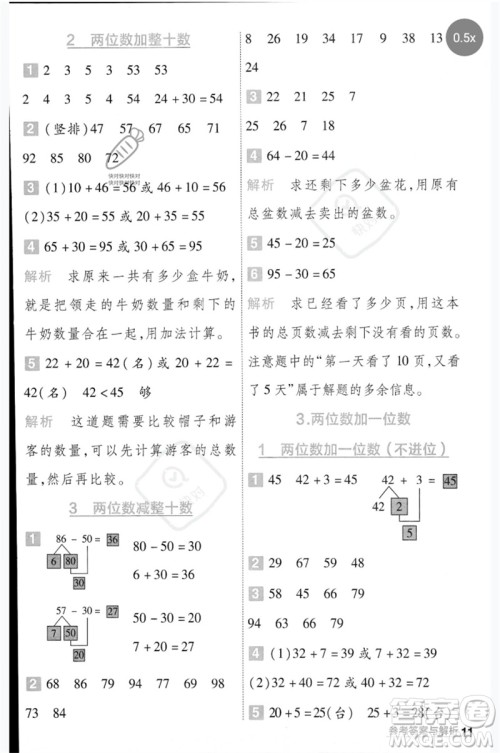 2 两位数加整十数
1 2 3 5 3 53 53
2 4 3 5 4 54 24+30=54
2 (竖排)47 57 67 65 66
92 85 80 72
3 (1)10+46=56 或 46+10=56
(2)35+20=55 或 20+35=55
4 65+30=95 或 30+65=95
解析 求原来一共有多少盒牛奶,
就是把领走的牛奶数量和剩下的
牛奶数量合在一起,用加法计算。
5 22+20=42(名) 或 20+22=
42(名) 42<45 够
解析 这道题需要比较帽子和游
客的数量,先计算游客的总数
量,然后再比较。
3 两位数减整十数
1 86-50=36
6 80
30
80-50=30
6+30=36
57-30=27
7 50
20
50-30=20
7+20=27
2 68 86 79 97 68 98
73 84
8 26 19 34 17 29 38 13
24
3 22 21 25 7
33 32 18 52
4 64-20=44
解析 求还剩下多少盆花,用原有
总盆数减去卖出的盆数。
5 45-20=25
解析 求已经看了多少页,用这本
书的总页数减去没看的页数。
注意题中的“第一天看了10页,又看
了5天”属于解题的多余信息。
3.两位数加一位数
1 两位数加一位数(不进位)
1 45 42+3=45 42+3=45
42 2
5
2 29 66 77 29 59 48
3 58 45 96 87
94 63 67 79
4 (1)32+7=39 或 7+32=39
(2)47+2=49 或 2+47=49
5 20+5=25(台) 或 5+20=
25(台)
参考答案与解析 11
0.5x